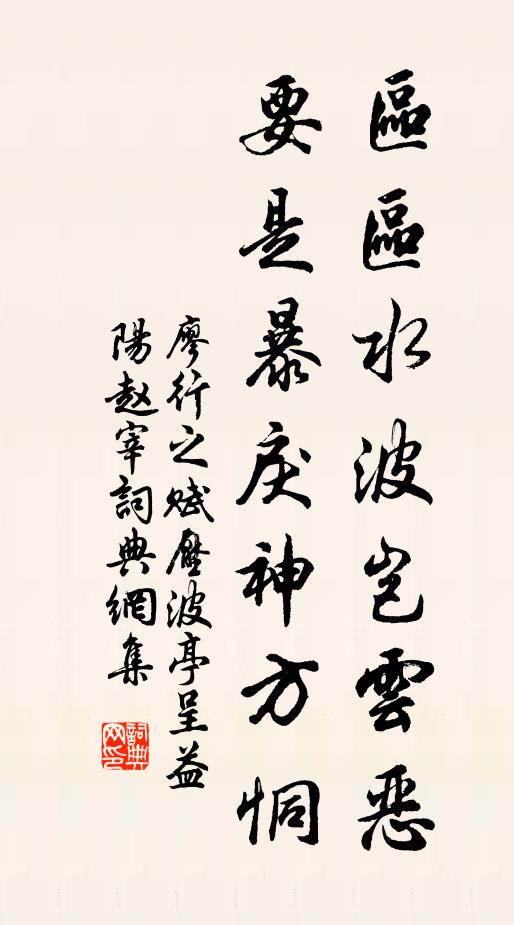 區區水波岂雲惡
要是暴戾神方恫
廖行之賦壓波亭呈益
陽赵宰詞典網集
詞典網印